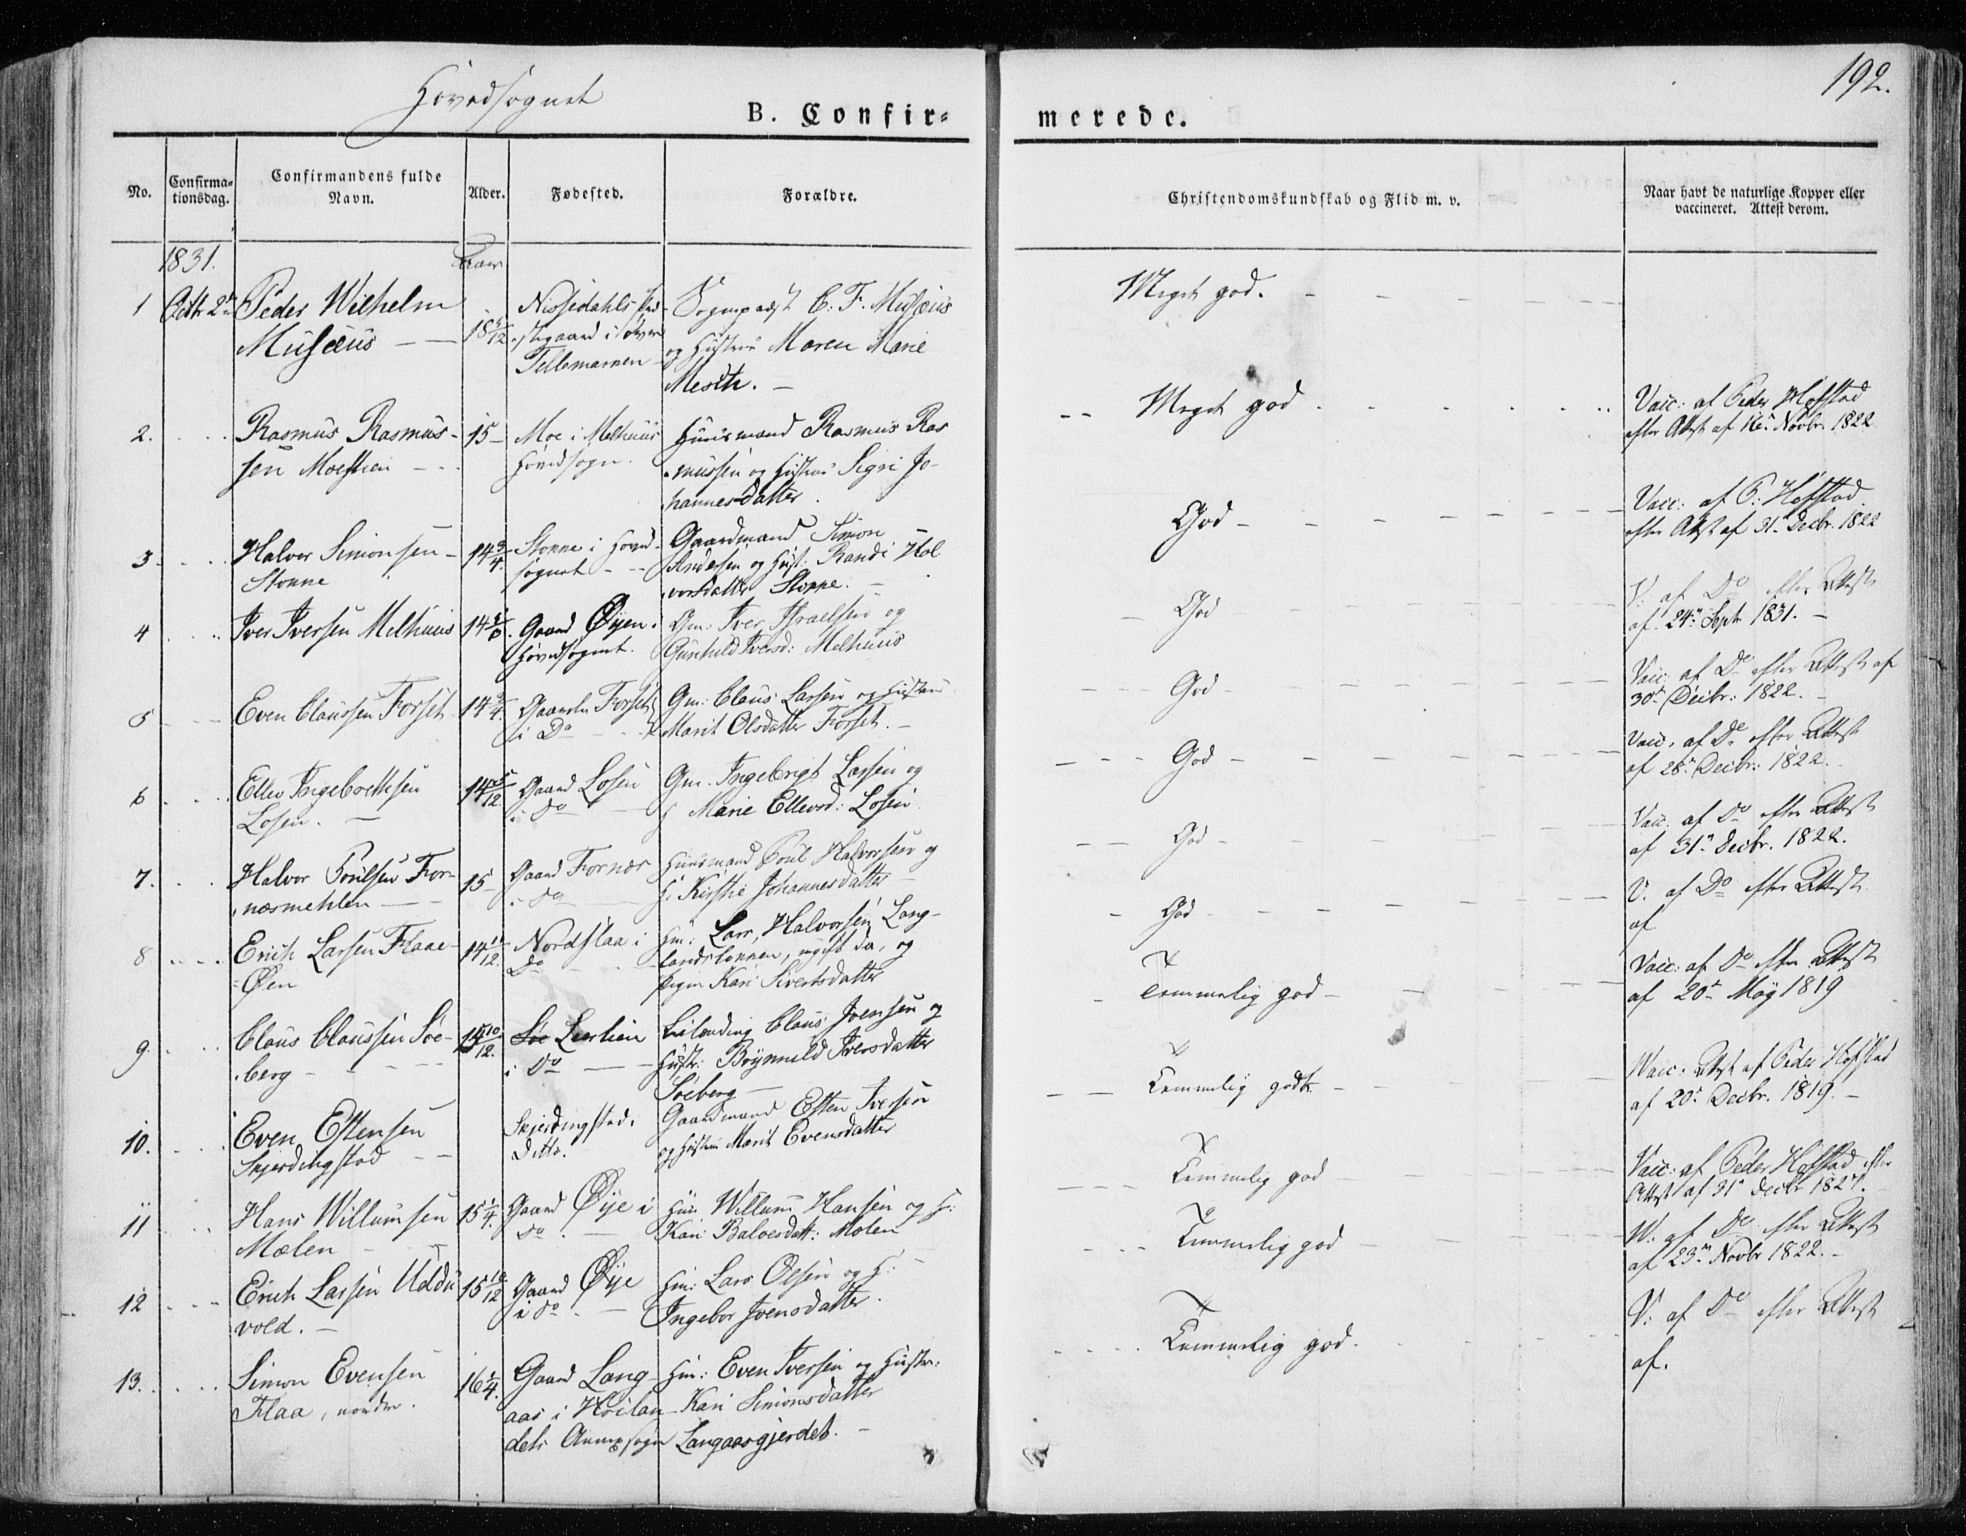 192.
Hovedsognet
B. Confirmerede.
No.
Confirmationsdag.
Confirmandens fulde Navn.
Alder.
Fødested.
Forældre.
Christendomskundskab og Flid m. v.
Naar havt de naturlige Kopper eller vaccineret. Attest derom.
1831.
Aar
1 Octbr 2den Peder Wilhelm
Musæus
Nissedahls
Tellemarken
Sognepræst C. F. Musæus
og Hustru Maren Marie
Mesch.
Meget god.
2. Rasmus Rasmus-
sen Moestien
15
Moe i Melhuus
Hovedsogn.
Huusmand Rasmus Ras
mussen og Hustru Sigri Jo-
hannesdatter.
Meget god
Vacc: af Peder Hofstad
efter Attst af 16de Novbr. 1822
3. Halvor Simonsen
Stonne
14 3/4
Stonne i Hoved-
sognet
Gaardmand Simon
Andersen og Hust: Randi Hal
vorsdatter Stonne.
God
Vacc: af P: Hofstad
efter Attst af 31. Decbr. 1822
4 Iver Iversen Melhuus
Gaard Øyen.
Hovedsognet.
Gm: Iver Israelsen og
Gunhild Iversd: Melhuus
God
V: af Do efter Attest
af 24n Sept 1831.
5 Even Claussen Forset
14 3/4
Gaarden Forset
i Do
Gm: Claus Larsen og Hustru
Marit Olsdatter Forset.
God
Vacc: af Do efter Attest af
30te Decbr: 1822.
6 Ellev Ingebrethsen
Losen.
14 5/12
Gaard Losen
i do
Gm. Ingebrigt Larsen og
H Marie Ellevsd: Losen
God
Vacc. af Do efter Attest
af 28n Decbr: 1822.
7. Halvor Poulsen For-
næsmehlen
15
Gaard Fornæs
i do
Huusmand Poul Halvorsen og
H: Kirsti Johannesdatter
God
Vacc. af Do efter Attest
af 31n Decbr. 1822.
8 Erich Larsen Flaae-
Øen
14 11/12
Nordflaa i
Do
Hm: Lars Halvorsen Lang-
landslonnen, ugift da, og
Pigen Kari Sivertsdatter
God
V. af Do efter Attest
af
9 Claus Claussen Søe-
berg
15 10/12
Leerlien
i Do
Leilænding Claus Joensen og
Hustr: Brynnild Iversdatter
Søeberg
Temmelig god
Vacc: af Do efter Attest
af 20de May 1819
10. Even Estensen
Skjerdingstad
Skjerdingstad.
Ditto.
Gaardmand Esten Iversen
og Hustru Marit Evensdatter
Temmelig godt
Vacc: Attst af Peder Hofstad
af 20de Decbr. 1819.
11 Hans Willumsen
Mælen
15 1/4.
Gaard Øye i
do
Huus Willum Hansen og H:
Kari Balvesdatt: Mælen
Temmelig god
Vacc: af Peder Hofstad efter
Attst af 31n Decbr 1821.
12 Erich Larsen Uddu
vold.
15 10/12
Gaard Øye
i do
Hm: Lars Olsen og H:
Ingebor Joensdatter
Temmelig god
V: af Do efter Attest
af 23n Novbr 1822.
13. Simon Evensen
Flaa, nordre.
16 1/4.
Gaard Lang-
aas i Høilan
dets Annexsogn
Hm: Even Iversen og Hustr:
Kari Simonsdatter
Langaasgjerdet.
Temmelig god.
V: af Do efter Attest
af.